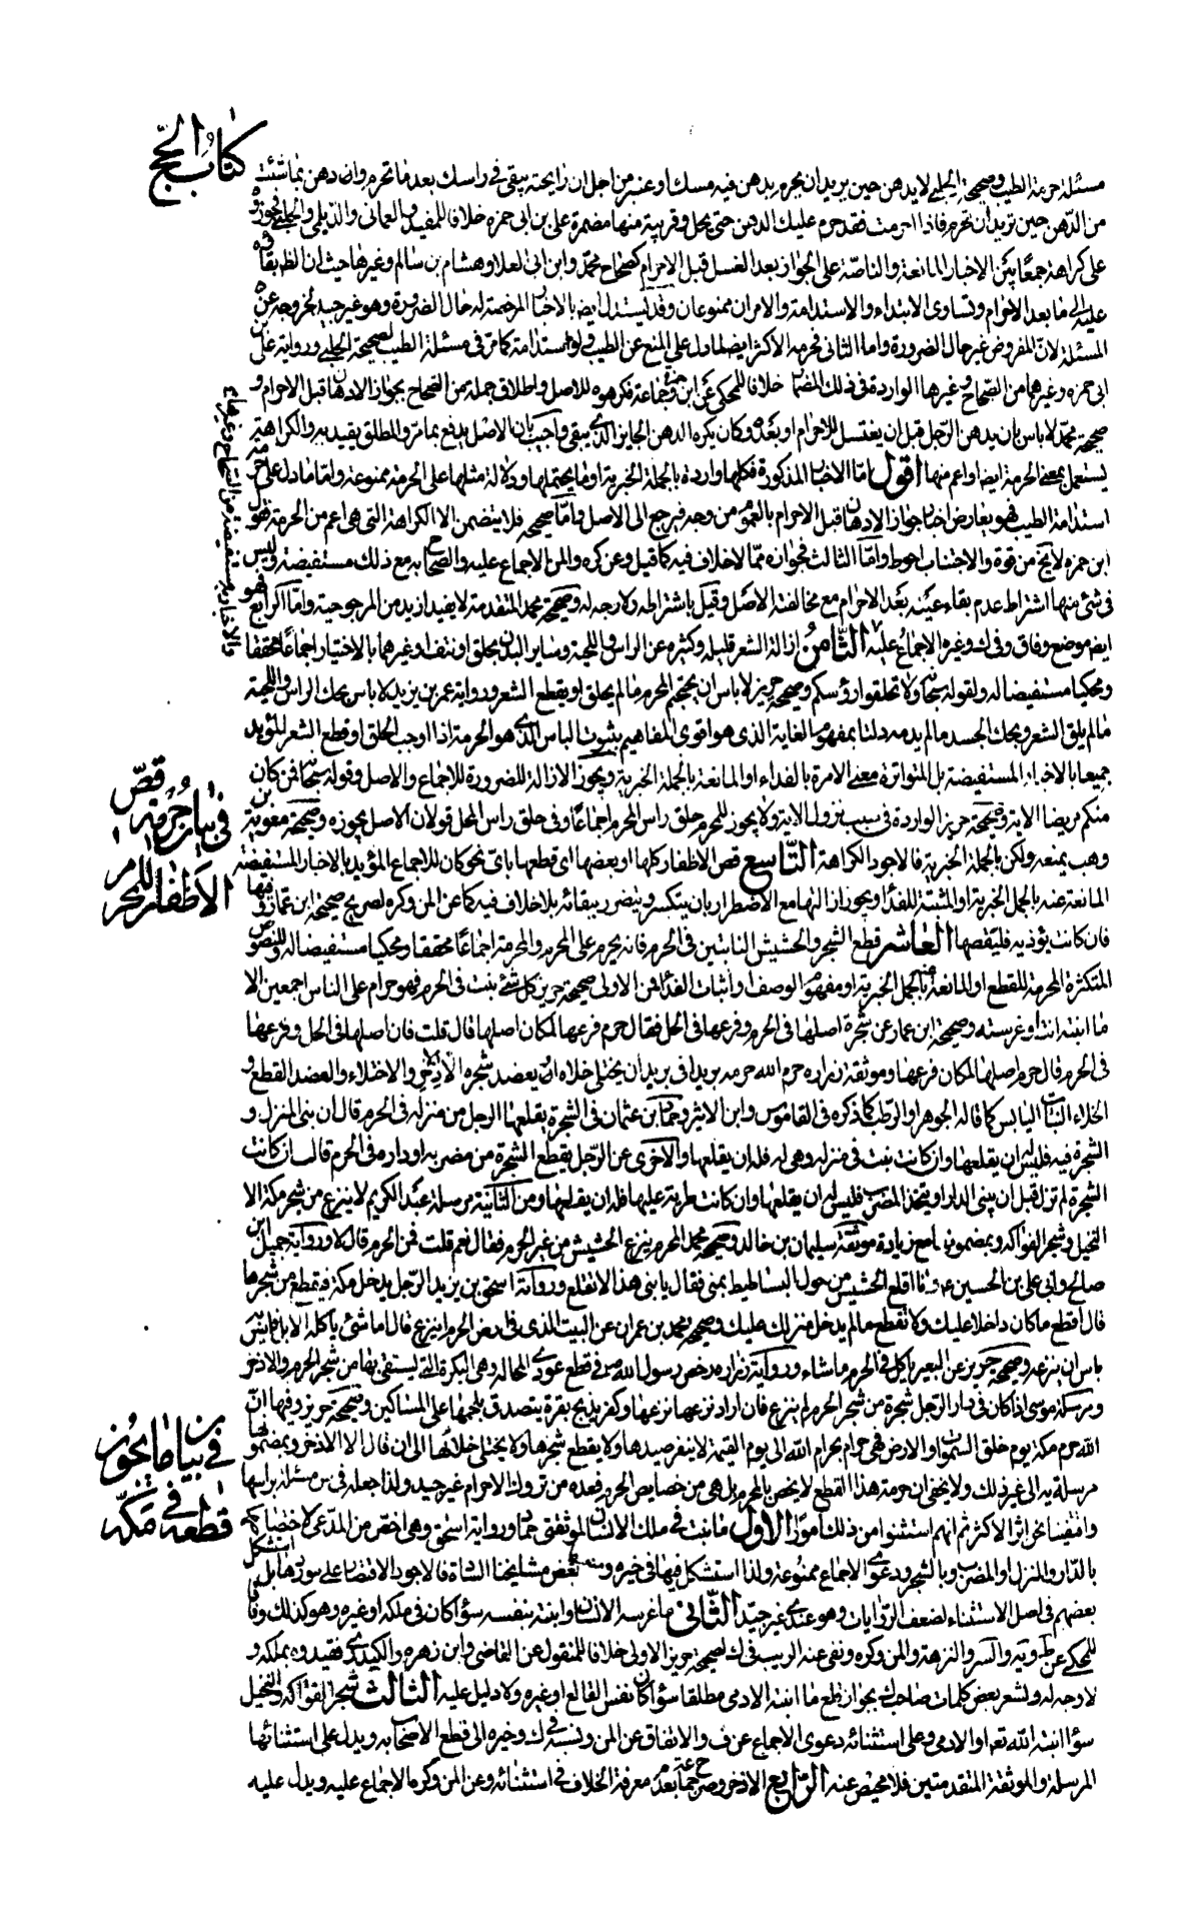 كتاب الحج
مسئلة حرمة الطيب وصحيحة الحلبي لا يدهن حين يريد ان يحرم بدهن فيه مسك او عنبر من اجل ان رايحته يبقى في راسك بعد ما تحرم وادهن بما شئت
من الدهن حين تريد ان تحرم فاذا احرمت فقد حرم عليك الدهن حتى يحل وقريبة منها مضمرة علي بن ابي حمزه خلافا للمفيد والعماني والديلمي والحلبي فجوزوه
على كراهة جمعا بين الاخبار المانعة والناصة على الجواز بعد الغسل قبل الاحرام كصحاح محمد وابن ابي العلا وهشام بن سالم وغيرها حيث ان الظ بقاؤه
عليه الى ما بعد الاحرام وتساوى الابتداء والاستدامة والامران ممنوعان وقد يستدل ايض بالاخبار المرخصة له حال الضرورة وهو غير جيد لخروجه عن
المسئلة لان المفروض غير حال الضرورة واما الثاني فحرمه الاكثر ايضا لما دل على المنع عن الطيب ولو استدامة كما مر في مسئلة الطيب لصحيحة الحلبي ورواية علي بن
ابي حمزه وغيرهما من الصحاح وغيرها الواردة في ذلك المضمار خلافا للمحكي عن ابن حمزة وجماعة فكرهوه للاصل واطلاق جملة من الصحاح بجواز الادهان قبل الاحرام و
صحيحة محمد لا باس بان يدهن الرجل قبل ان يغتسل للاحرام او بعده وكان يكره الدهن الخاثر الذي يبقى واجيب بان الاصل يدفع بما مر والمطلق يقيد به والكراهة
يستعمل بمعنى الحرمة ايضا واعم منها اقول اما الاخبار المذكورة فكلها واردة بالجملة الخبرية او ما يحتملها ودلالة مثلها على الحرمة ممنوعة واما ما دل على حرمة
استدامة الطيب فهو يعارض اخبار جواز الادهان قبل الاحرام بالعموم من وجه فيرجع الى الاصل واما صحيحه فلا يتضمن الا الكراهة التي هي اعم من الحرمة فقول
ابن حمزه لا يخ من قوة والاجتناب احوط واما الثالث فجوازه مما لا خلاف فيه كما قيل وعن كره والمن الاجماع عليه والصحاح به مع ذلك مستفيضة وليس
في شئ منها اشتراط عدم بقاء عينه بعد الاحرام مع مخالفته الاصل وقيل باشتراطه ولا وجه له وصحيحة محمد المتقدمة لا يفيد ازيد من المرجوحية واما الرابع فهو
ايض موضع وفاق وفي ك وغيره الاجماع عليه الثامن ازالة الشعر قليله وكثيره عن الراس واللحية وساير البدن بحلق او نتف او غيرهما بالاختيار اجماعا محققا
ومحكيا مستفيضا له ولقوله سبحانه ولا تحلقوا رؤسكم وصحيحة حريز لا باس ان يحتجم المحرم ما لم يحلق او يقطع الشعر ورواية عمر بن يزيد لا باس بحك الراس واللحية
ما لم يلق الشعر وبحك الجسد ما لم يدمه دلتا بمفهوم الغاية الذي هو اقوى المفاهيم بثبوت الباس الذي هو الحرمة اذا اوجب الحلق او قطع الشعر المؤيد
جميعا بالاخبار المستفيضة بل المتواترة معنى الامرة بالفداء او المانعة بالجملة الخبرية ويجوز الازالة للضرورة للاجماع والاصل وقوله سبحانه فمن كان
منكم مريضا الاية وصحيحة حريز الواردة في سبب نزول الاية ولا يجوز للمحرم حلق راس المحرم اجماعا وفي حلق راس المحل قولان الاصل يجوزه وصحيحة معوية بن
وهب يمنعه ولكن بالجملة الخبرية فالاجود الكراهة التاسع قص الاظفار كلها او بعضها اى قطعها باى نحو كان للاجماع المؤيد بالاخبار المستفيضة
المانعة عنه بالجمل الخبرية او المثبتة للفداء ويجوز ازالتها مع الاضطرار بان ينكسر ويتضرر ببقائه بلا خلاف فيه كما عن المن وكره لصريح صحيحة ابن عمار وفيها
فان كانت يؤذيه فليقصها العاشر قطع الشجر والحشيش النابتين في الحرم فانه يحرم على المحرم والمحرمة اجماعا محققا ومحكيا مستفيضا له وللنصوص
المتكثرة المحرمة للقطع او المانعة منه بالجمل الخبرية او مفهوم الوصف او اثبات الفداء فمن الاولى صحيحة حريز كل شئ ينبت في الحرم فهو حرام على الناس اجمعين الا
ما انبته انت او غرسته وصحيحة ابن عمار عن شجرة اصلها في الحرم وفرعها في الحل فقال حرم فرعها لمكان اصلها قال قلت فان اصلها في الحل وفرعها
في الحرم قال حرم اصلها لمكان فرعها وموثقة زراره حرم الله حرمه بريدا في بريد ان يختلى خلاه او يعضد شجره الا الاذخر والاختلاء والعضد القطع و
الخلاء النبات اليابس كما قاله الجوهر او الرطب كما ذكره في القاموس وابن الاثير وحماد بن عثمان في الشجرة يقلعها الرجل من منزله في الحرم قال ان بنى المنزل و
الشجرة فيه فليس له ان يقلعها وان كانت نبت في منزله وهي له فله ان يقلعها والاخرى عن الرجل يقطع الشجرة من مضربه او داره في الحرم قال ان كانت
الشجرة لم تزل قبل ان يبني الدار او يتخذ المضرب فليس له ان يقلعها وان كانت طرية عليها فله ان يقلعها ومن الثانية مرسلة عبد الكريم لا ينزع من شجر مكة الا
النخيل وشجر الفواكه وبمضمونها مع زيادة موثقة سليمان بن خالد وصحيحة محمد المحرم ينزع الحشيش من غير الحرم فقال نعم قلت فمن الحرم قال لا ورواية جميل ابن
صالح وابي علي بن الحسين ع وانا اقلع الحشيش من حول الفساطيط بمنى فقال يا بني هذا لا يقلع ورواية اسحق بن يزيد الرجل يدخل مكة فيقطع من شجرها
قال اقطع ما كان داخلا عليك ولا تقطع ما لم يدخل منزلك عليك وصحيحة محمد بن عمران عن النبت الذي في ارض الحرم اينزع قال اما شئ ياكله الابل فليس به
باس ان ينزعه وصحيحة حريز عن البعير ياكل في الحرم ما شاء ورواية زراره رخص رسول الله ص في قطع عودي المحالة وهي البكرة التي يستقي بها من شجر الحرم والاذخر
ومرسلة موسى اذا كان في دار الرجل شجرة من شجر الحرم لم ينزع فان اراد نزعها نزعها وكفر بذبح بقرة يتصدق بلحمها على المساكين وصحيحة حريز وفيها ان
الله حرم مكة يوم خلق السموات والارض فهي حرام بحرام الله الى يوم القيمة لا ينفر صيدها ولا يقطع شجرها ولا يختلى خلاؤها الى ان قال الا الاذخر وبمضمونها
مرسلة يه الى غير ذلك ولا يخفى ان حرمة هذا القطع لا يختص بالمحرم بل هي من خصايص الحرم فعده من تروك الاحرام غير جيد ولذا جعله في س مسئلة براسها
واقتفينا نحن اثر الاكثر ثم انهم استثنوا من ذلك امورا الاول ما نبت في ملك الانسان لموثقتي حماد ورواية اسحق وهي اخص من المدعى لاختصاصها
بالدار والمنزل او المضرب وبالشجر ودعوى الاجماع ممنوعة ولذا استشكل فيها في خيره ومنه بعض مشايخنا الشاة فالاجود الاقتصار على موردها بل استشكل
بعضهم في اصل الاستثناء لضعف الروايات وهو عندي غير جيد الثاني ما غرسه الانسان وانبته بنفسه سواء كان في ملكه او غيره وهو كذلك وفاقا
للمحكي عن ط ويه والسر والنزهة والمن وكره ونفى عنه الريب في ك لصحيحة حريز الاولى خلافا للمنقول عن القاضي وابن زهره والكيدري فقيدوه بملكه و
لا وجه له ويشعر بعض كلمات صاحب ك بجواز قلع ما انبته الادمي مطلقا سواء كان نفس القالع او غيره ولا دليل عليه الثالث شجر الفواكه والنخيل
سواء انبته الله تعالى او الادمي وعلى استثنائه دعوى الاجماع عن ف والاتفاق عن المن ونسبه في ك وخيره الى قطع الاصحاب به ويدل على استثنائها
المرسلة والموثقة المتقدمتين فلا محيص عنه الرابع الاذخر وصرح جماعة بعدم معرفة الخلاف في استثنائه وعن المن وكره الاجماع عليه ويدل عليه
في بيان حرمة قص
الاظفار للمحرم
في بيان ما يجوز
قطعه في مكة